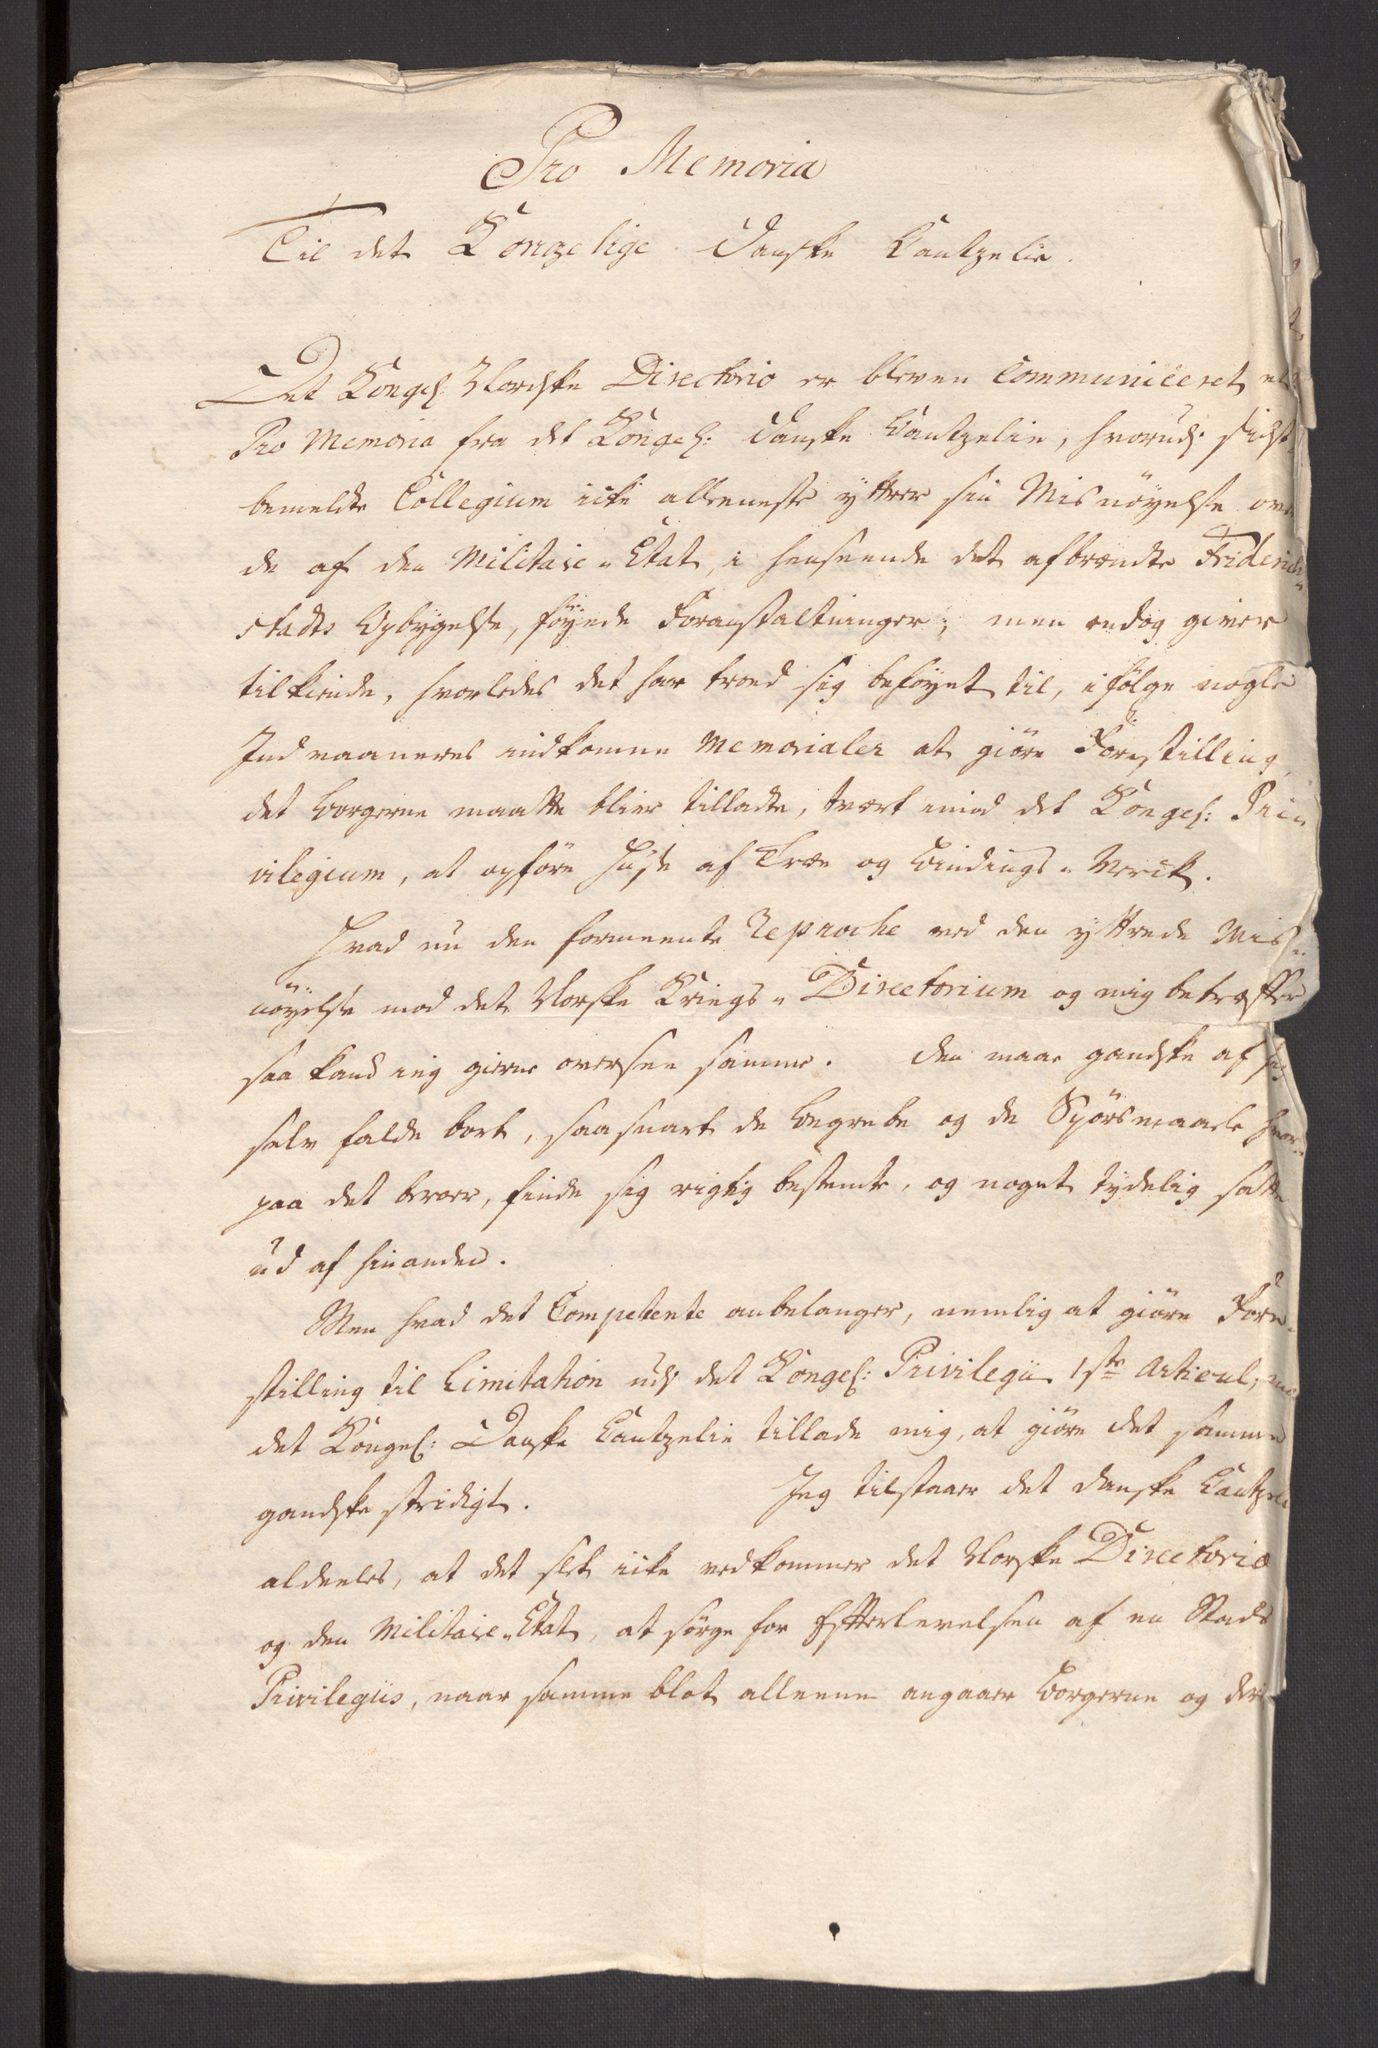 Pro Memoria
Til det Kongelige Danske Cantzelie.
Det Kongel: Norske Directorio er bleven Communiceret et
Pro Memoria fra det Kongel: Danske Cantzelie, hvorudj sidst
bemeldte Collegium icke alleneste yttrer sin Misnöyelse over
de af den Militaire Etat, i henseende det afbrændte Friderich
stads Opbygelse, föyede Foranstaltninger; men endog giver
tilkiende, hvorledes det har troed sig beföyet til, ifölge nogle
Indvaaneres indkomne Memorialer at giöre Forestilling,
det Borgerne maatte blive tilladte, tvert imod det Kongel: Pri
vilegium, at opföre Huse af Træe og Bindings-Verck.
Hvad nu den formeente Reproche ved den yttrede Mis-
nöyelse mod det Norske Kriegs-Directorium og mig betreffer
saa kand jeg gierne oversee samme. Den maae gandske af sig
selv falde bort, saasnart de Begrebe og de Spörsmaale hvor
paa det beroer, finde sig rigtig bestemte, og noget tydelig satte
ud af hinanden.
Men hvad det Competente anbelanger, nemlig at giöre Fore-
stilling til Limitation udj det Kongel: Privilegii 1ste Articul,
det Kongel: Danske Cantzelie tillade mig, at giöre det samme
gandske stridigt. Jeg tilstaaer det danske Cantzelie
aldeeles, at det slet icke vedkommer det Norske Directorio
og den Militaire Etat, at sörge for Efterlevelsen af en Stads
Privilegiis, naar samme blot alleene angaaer Borgerne og der